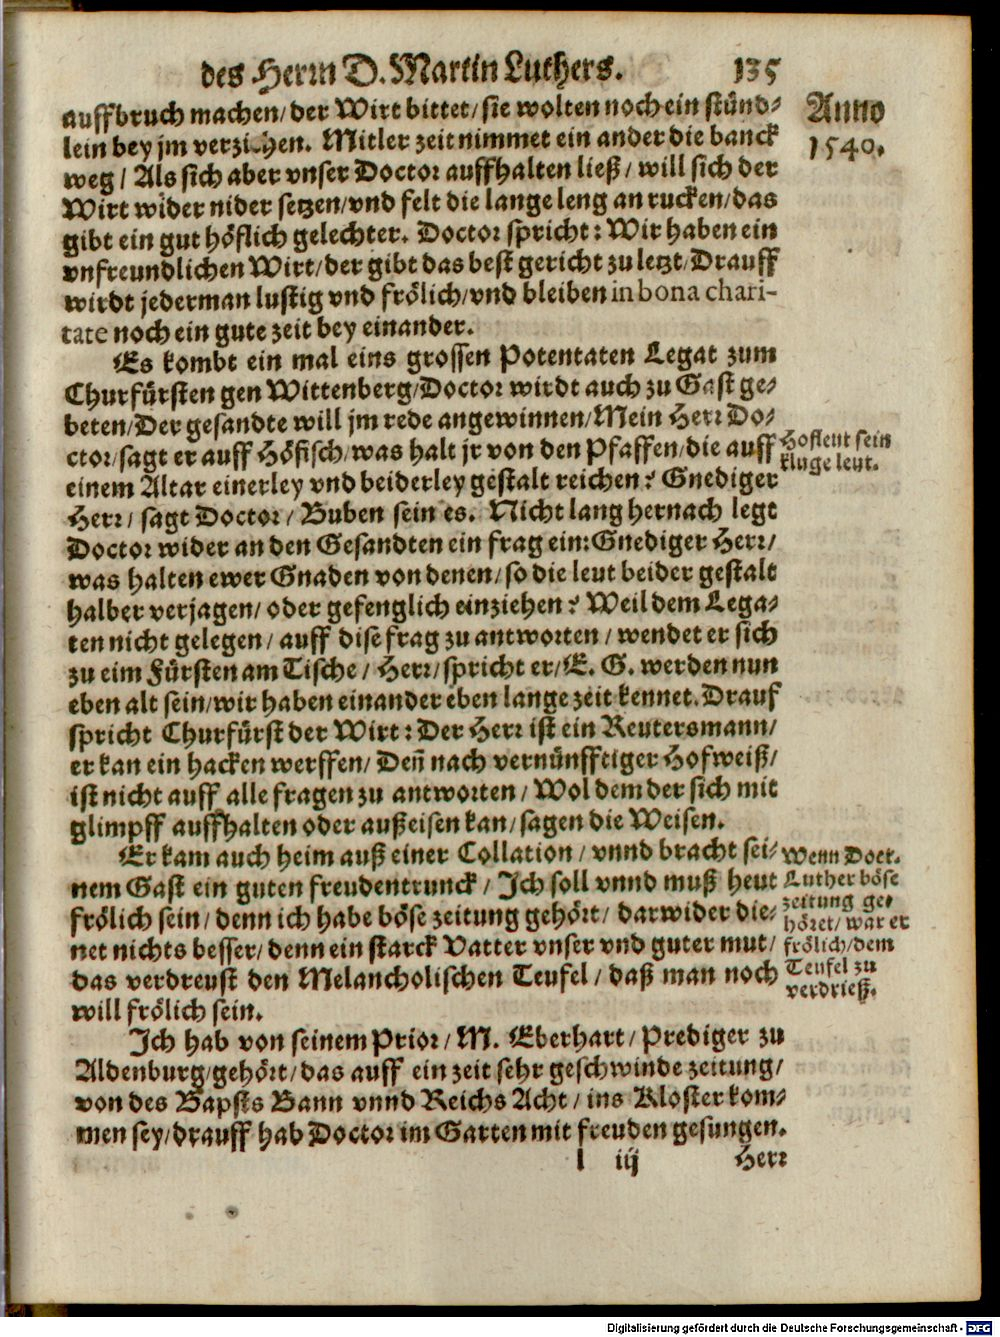 des Herrn D. Martin Luthers. 135
auffbruch machen/ der Wirt bittet/ sie wolten noch ein stünd-
lein bey jm verziehen. Mitler zeit nimmet ein ander die banck
weg/ Als sich aber vnser Doctor auffhalten ließ/ will sich der
Wirt wider nider setzen/ vnd felt die lange leng an rucken/ das
gibt ein gut höflich gelechter. Doctor spricht: Wir haben ein
vnfreundlichen Wirt/ der gibt das best gericht zu letzt/ Drauff
wirdt jederman lustig vnd frölich/ vnd bleiben in bona chari-
tate noch ein gute zeit bey einander.
Anno
1540.
Es kombt ein mal eins grossen Potentaten Legat zum
Churfürsten gen Wittenberg/ Doctor wirdt auch zu Gast ge-
beten/ Der gesandte will jm rede angewinnen/ Mein Herr Do-
ctor/ sagt er auff Höfisch/ was halt jr von den Pfaffen/ die auff
einem Altar einerley vnd beiderley gestalt reichen? Gnediger
Herr/ sagt Doctor/ Buben sein es. Nicht lang hernach legt
Doctor wider an den Gesandten ein frag ein: Gnediger Herr/
was halten ewer Gnaden von denen/ so die leut beider gestalt
halber verjagen/ oder gefenglich einziehen? Weil dem Lega-
ten nicht gelegen/ auff dise frag zu antworten/ wendet er sich
zu eim Fürsten am Tische/ Herr/ spricht er/ E. G. werden nun
eben alt sein/ wir haben einander eben lange zeit kennet. Drauf
spricht Churfürst der Wirt: Der Herr ist ein Reutersmann/
er kan ein hacken werffen/ Deñ nach vernünfftiger Hofweiß/
ist nicht auff alle fragen zu antworten/ Wol dem der sich mit
glimpff auffhalten oder außeisen kan/ sagen die Weisen.
Hofleut sein
kluge leut.
Er kam auch heim auß einer Collation/ vnnd bracht sei-
nem Gast ein guten freudentrunck/ Ich soll vnnd muß heut
frölich sein/ denn ich habe böse zeitung gehört/ darwider die-
net nichts besser/ denn ein starck Vatter vnser vnd guter mut/
das verdreust den Melancholischen Teufel/ daß man noch
will frölich sein.
Wenn Doct.
Luther böse
zeitung ge-
höret/ war er
frölich/ dem
Teufel zu
verdrieß.
Ich hab von seinem Prior/ M. Eberhart/ Prediger zu
Aldenburg/ gehört/ das auff ein zeit sehr geschwinde zeitung/
von des Bapsts Bann vnnd Reichs Acht/ ins Kloster kom-
men sey/ drauff hab Doctor im Garten mit freuden gesungen.
l iij Herr
Digitalisierung gefördert durch die Deutsche Forschungsgemeinschaft - DFG